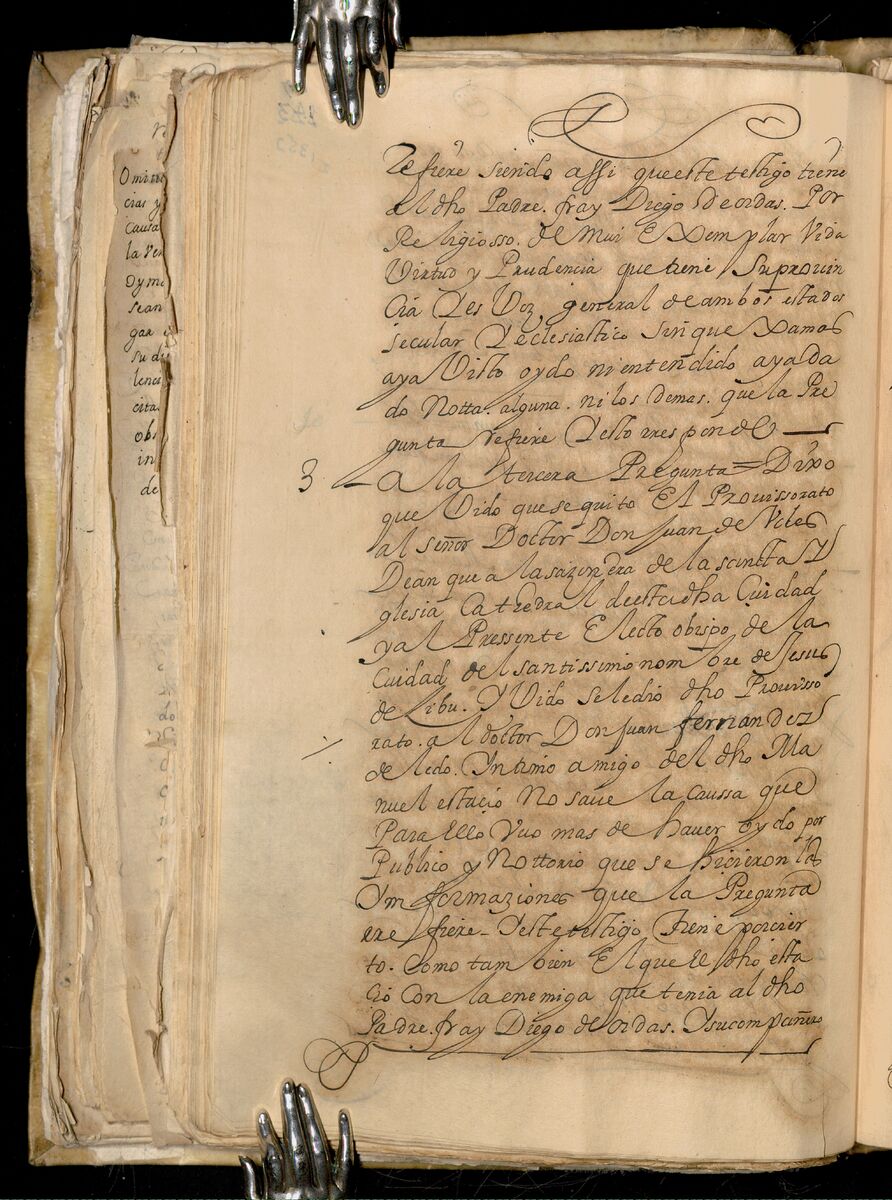 Refiere siendo assi que este testigo tiene
al dho Padre. fray Diego de ordas. Por
Religiosso. de Mui Exemplar Vida
Virtud y Prudencia que tiene Su prouin
cia Yes Voz general de ambos estados
secular Y eclesiastico sin que xamas
aya Visto oydo ni entendido aya da
do Notta. alguna. ni los demas. que la Pre
gunta refiere Y esto rresponde
3 A la tercera Pregunta = Dixo
que Vido que se quito El Prouissorato
al señor Doctor Don Juan de Veles
Dean que a la sazon era de la scancta Y
glesia Cathedral de esta dha Cuidad
y al Pressente Electo obispo de la
Cuidad del santissimo nombre de Jesus
de Cibu. Y Vido se le dio dho Prouisso
rato. al dottor Don Juan fernandez
de ledo. Yntimo amigo del dho Ma
nuel estacio No saue la caussa que
Para Ello Vuo mas de hauer oydo por
Publico y Nottorio que se hicieron las
Ymformaziones que la Pregunta
rre fiere - Y este testigo tiene por cier
to. Como tambien El que El dho esta
cio con la enemiga que tenia al dho
Padre. fray Diego de ordas. Y su compañero
Omi
cias y
Causa
la Ven
Oy mo
sean
gar
su di
lenc
cita
obs
in
de